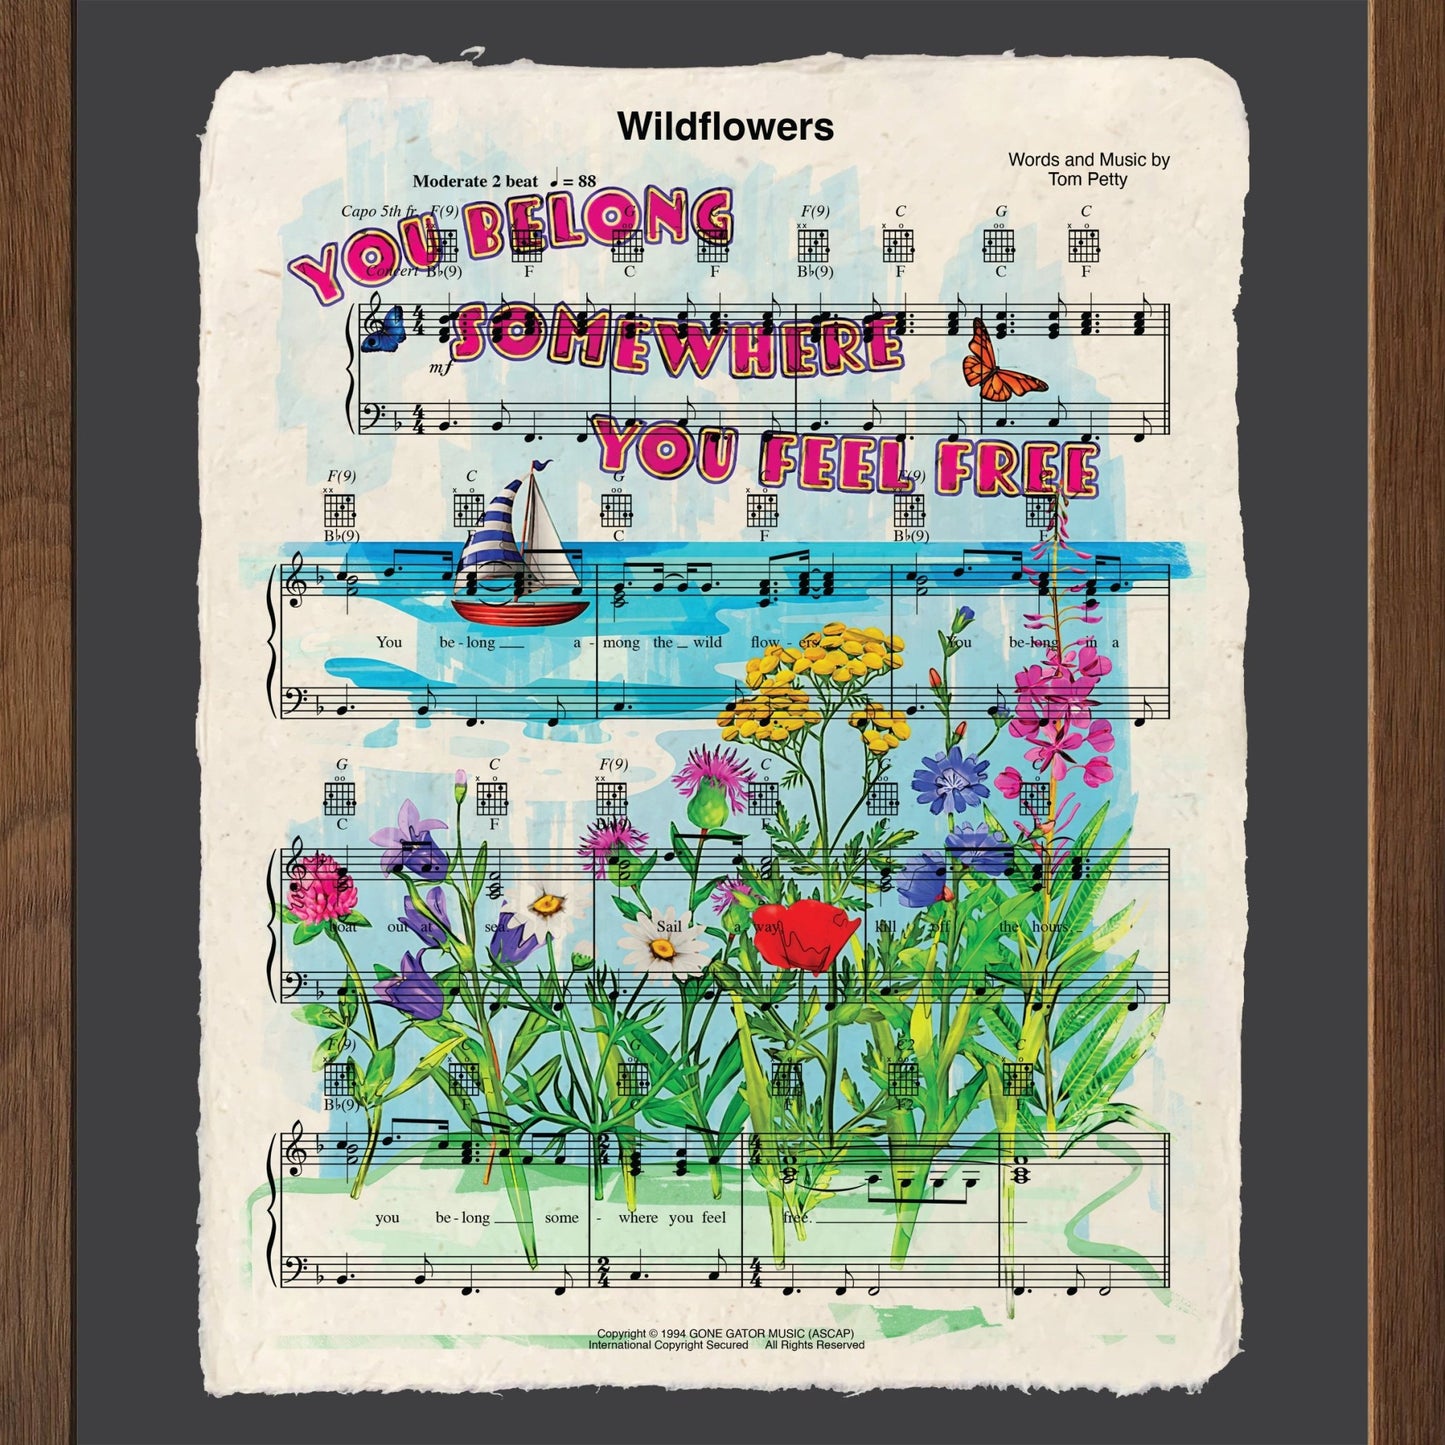 Wildflowers
Words and Music by
Tom Petty
Moderate 2 beat ♩ = 88
Capo 5th fr. F(9) C G F(9) C G C
YOU BELONG
Concert B♭(9) F C F B♭(9) F C F
SOMEWHERE
mf
YOU FEEL FREE
F(9) C G C F(9) C
B♭(9) F C F B♭(9) F
You be - long a - mong the wild flow - ers. You be - long in a
G C F(9) C G C
C F B♭(9) F C
boat out at sea. Sail a - way, kill off the hours.
F(9) C G C C2 C
B♭(9) F C F F2 F
you be - long some - where you feel free.
Copyright © 1994 GONE GATOR MUSIC (ASCAP)
International Copyright Secured All Rights Reserved